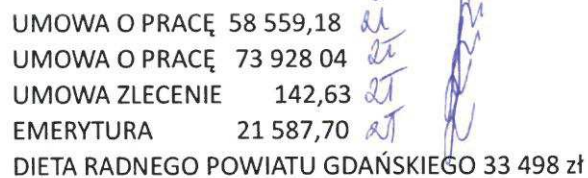 UMOWA O PRACĘ 58 559,18 zł
UMOWA O PRACĘ 73 928 04 zł
UMOWA ZLECENIE 142,63 zł
EMERYTURA 21 587,70 zł
DIETA RADNEGO POWIATU GDAŃSKIEGO 33 498 zł